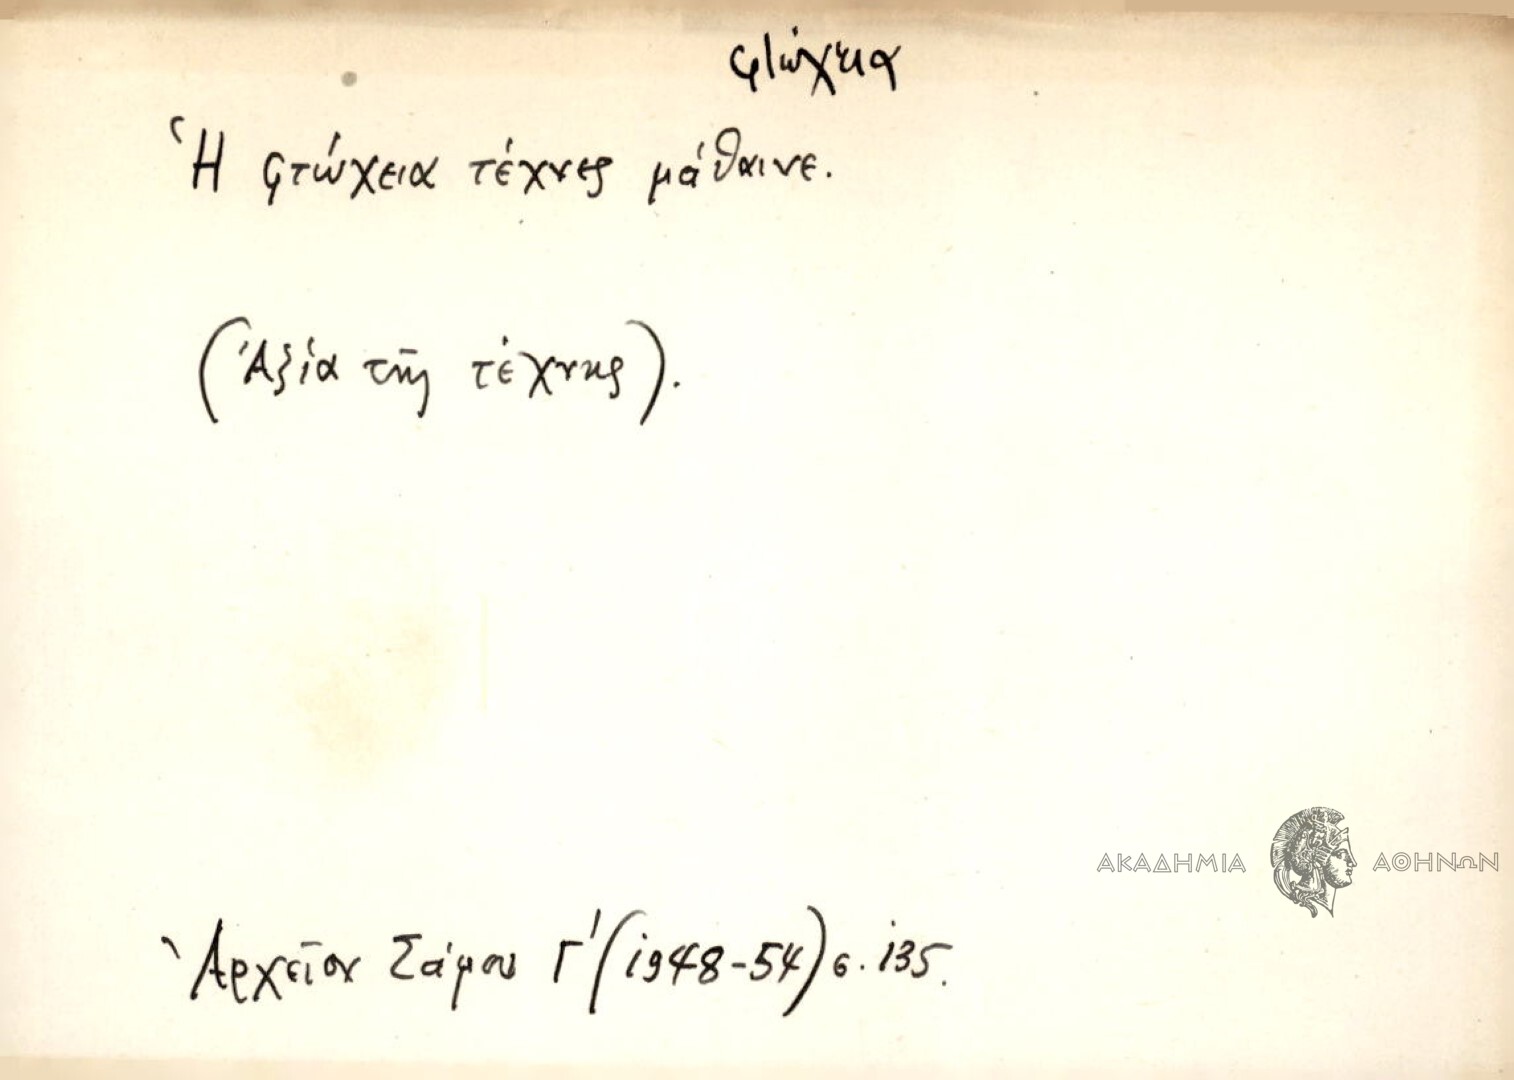 φτώχεια
Ἡ φτώχεια τέχνες μάθαινε.
(Ἀξία τῆς τέχνης).
ΑΚΑΔΗΜΙΑ ΑΘΗΝΩΝ
Ἀρχεῖον Σάμου Γ' (1948-54) σ. 135.